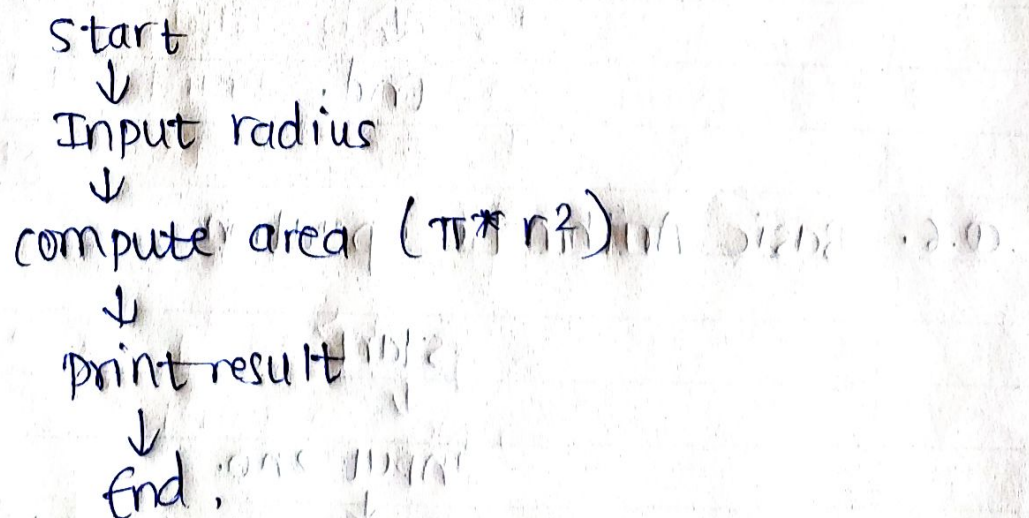 Start
↓
Input radius
↓
compute area (π * r²)
↓
print result
↓
End.